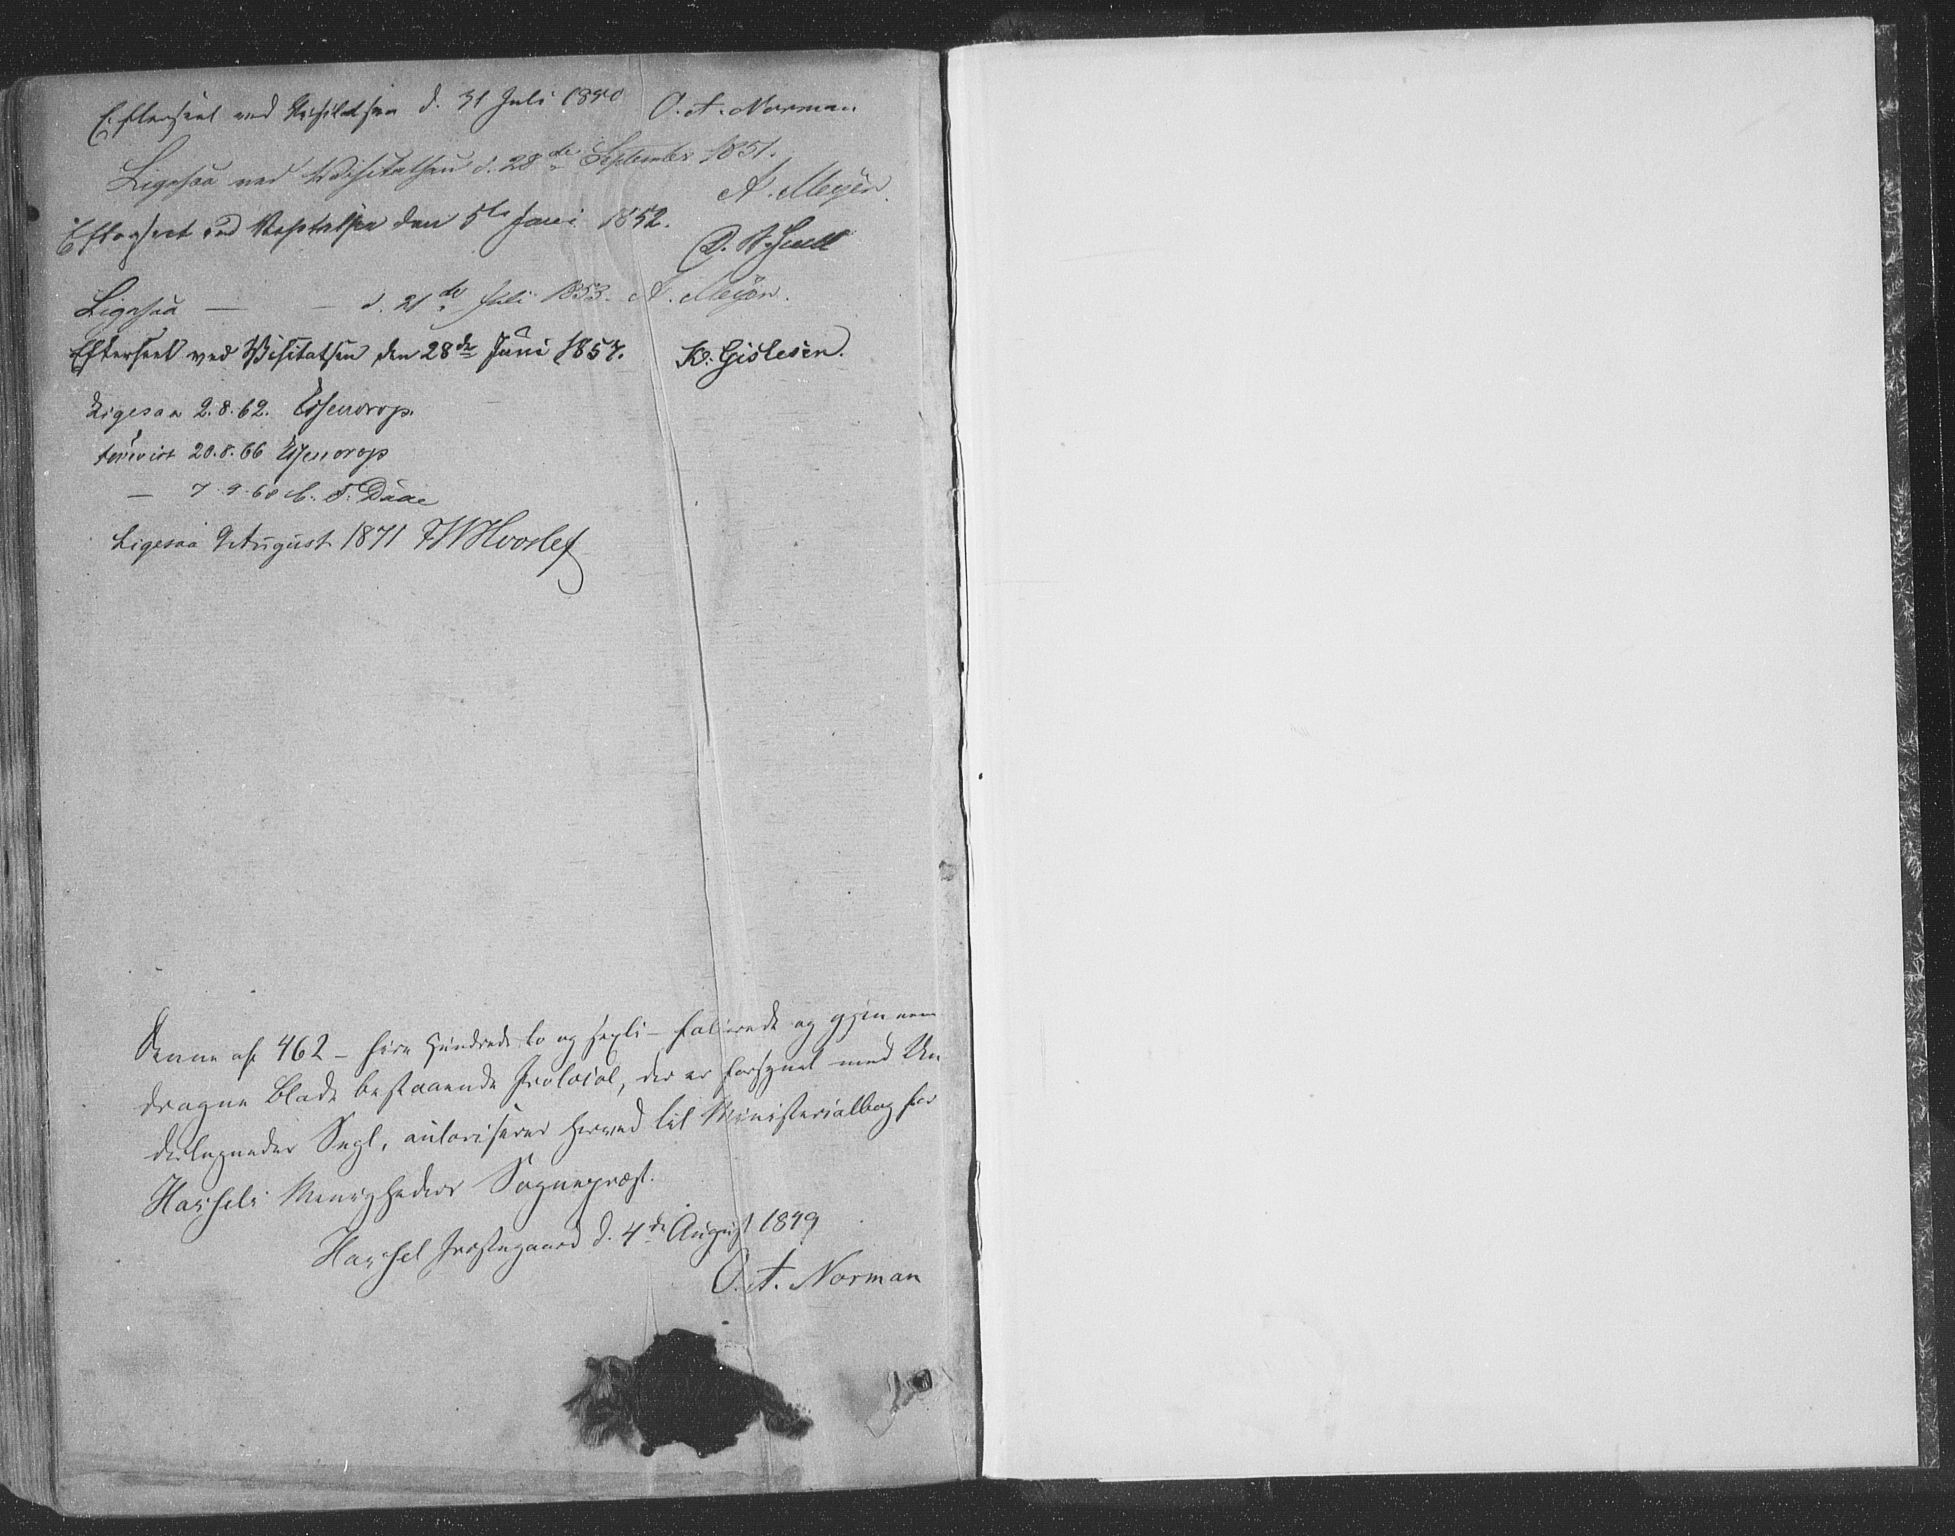 Efterseet ved Visitatsen d. 31 Juli 1850 O. A. Norman
Ligesaa ved Visitatsen d. 28de September 1851.
A. Meyer.
Efterseet ved Visitatsen den 5te Juni 1852.
Ligesaa — — d. 21de Juli 1853. A. Meyer.
Efterseet ved Visitatsen den 28de Juni 1857. K. Gislesen.
Ligesaa 2.8.62. Essendrop.
20.8.66 Essendrop
— 7.9.68 C. F. Daae
Ligesaa 9 August 1871 FWHvoslef
Denne af 462 – fire Hundrede to og sexti – folierede og gjennem
dragne Blade bestaaende Protocol, der er forsynet med Un
dertegnedes Segl, autoriseres herved til Ministerialbog for
Hassels Menigheders Sognepræst.
Hassel Præstegaard d. 4de August 1849
O. A. Norman